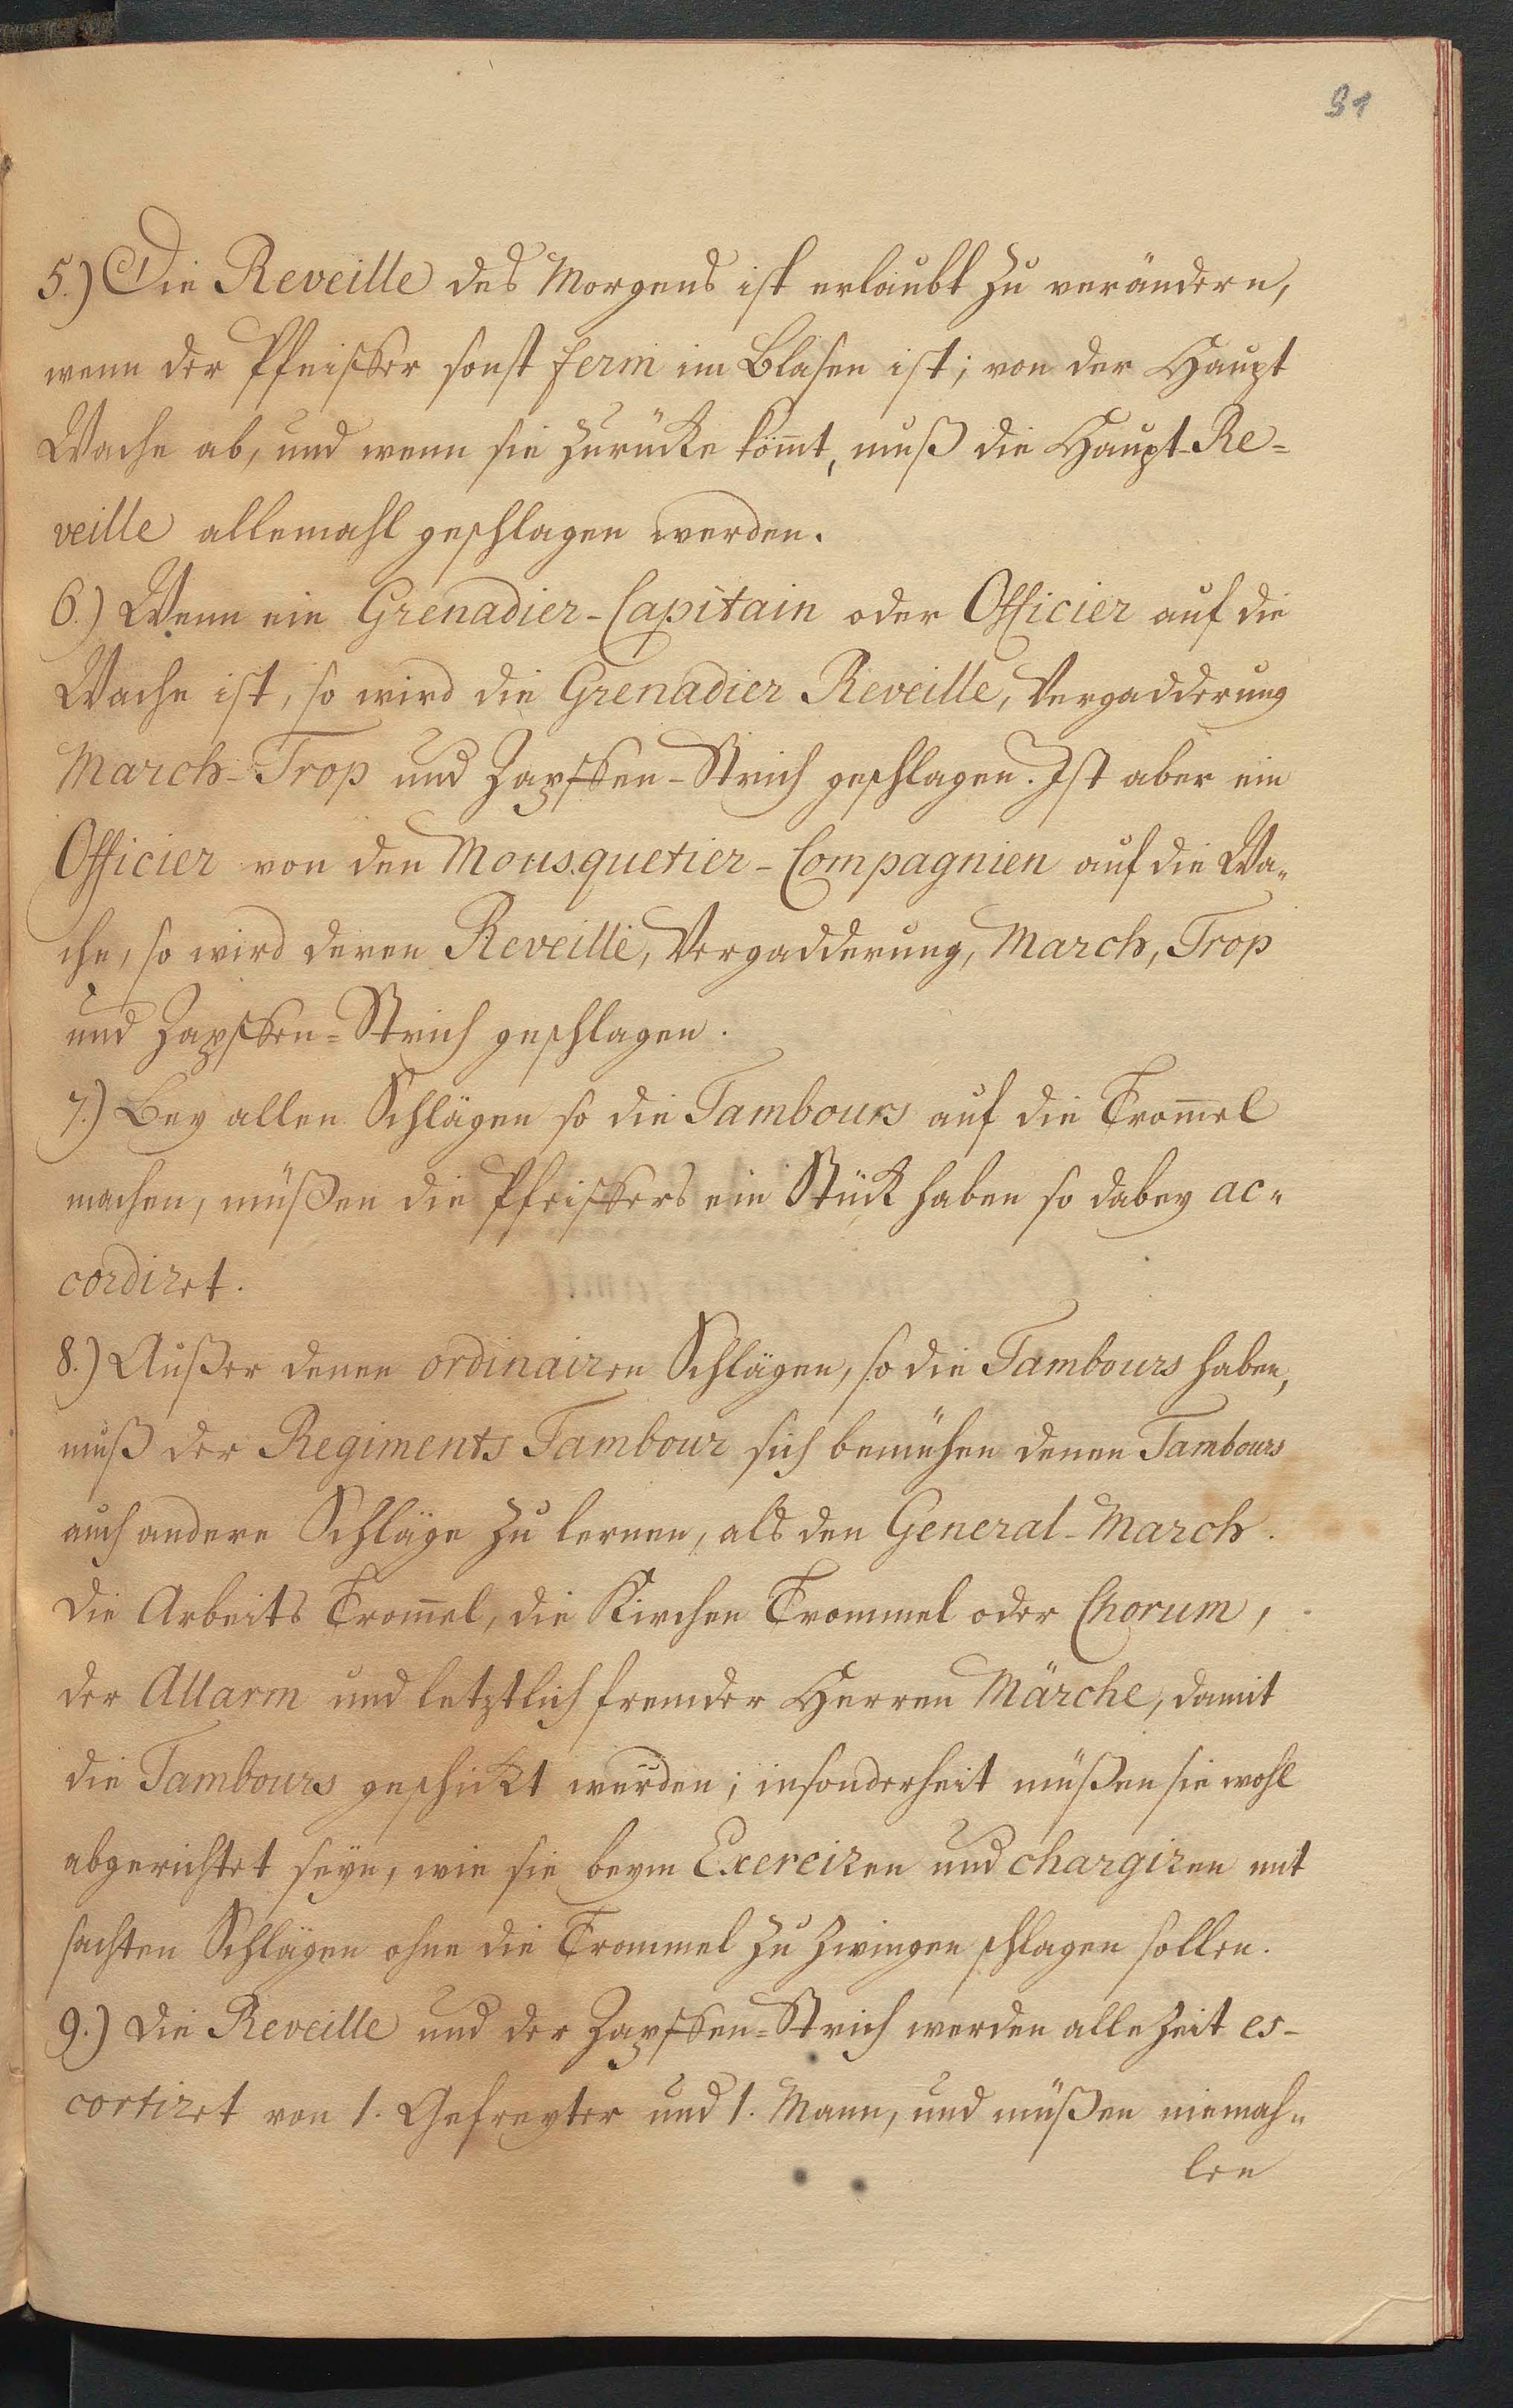 91
5.) Die Reveille des Morgens ist erlaubt zu verändern,
wenn der Pfeiffer sonst ferm im Blasen ist; von der Haupt
Wache ab, und wenn sie zurücke kömt, muß die Haupt-Re=
veille allemahl geschlagen werden.
6.) Wenn ein Grenadier-Capitain oder Officier auf die
Wache ist, so wird die Grenadier Reveille, Vergadderung
March-Trop und Zapffen-Strich geschlagen. Ist aber ein
Officier von den Mousquetier-Compagnien auf die Wa=
che, so wird deren Reveille, Vergadderung, March, Trop
und Zapffen=Strich geschlagen.
7.) Bey allen Schlägen so die Tambours auf die Trom̄el
machen, müßen die Pfeiffers ein Stück haben so dabey ac=
cordiret.
8.) Außer denen ordinairen Schlägen, so die Tambours haben,
muß der Regiments Tambour sich bemühen denen Tambours
auch andere Schläge zu lernen, als den General-March.
die Arbeits Trom̄el, die Kirchen Trommel oder Chorum,
der Allarm und letztlich fremder Herren Märche, damit
die Tambours geschickt würden; insonderheit müßen sie wohl
abgerichtet seyn, wie sie beym Exerciren und chargiren mit
sachten Schlägen ohne die Trommel zu zwingen schlagen sollen.
9.) die Reveille und der Zapffen=Strich werden alle Zeit es-
cortiret von 1. Gefreyter und 1. Mann, und müßen niemah=
len